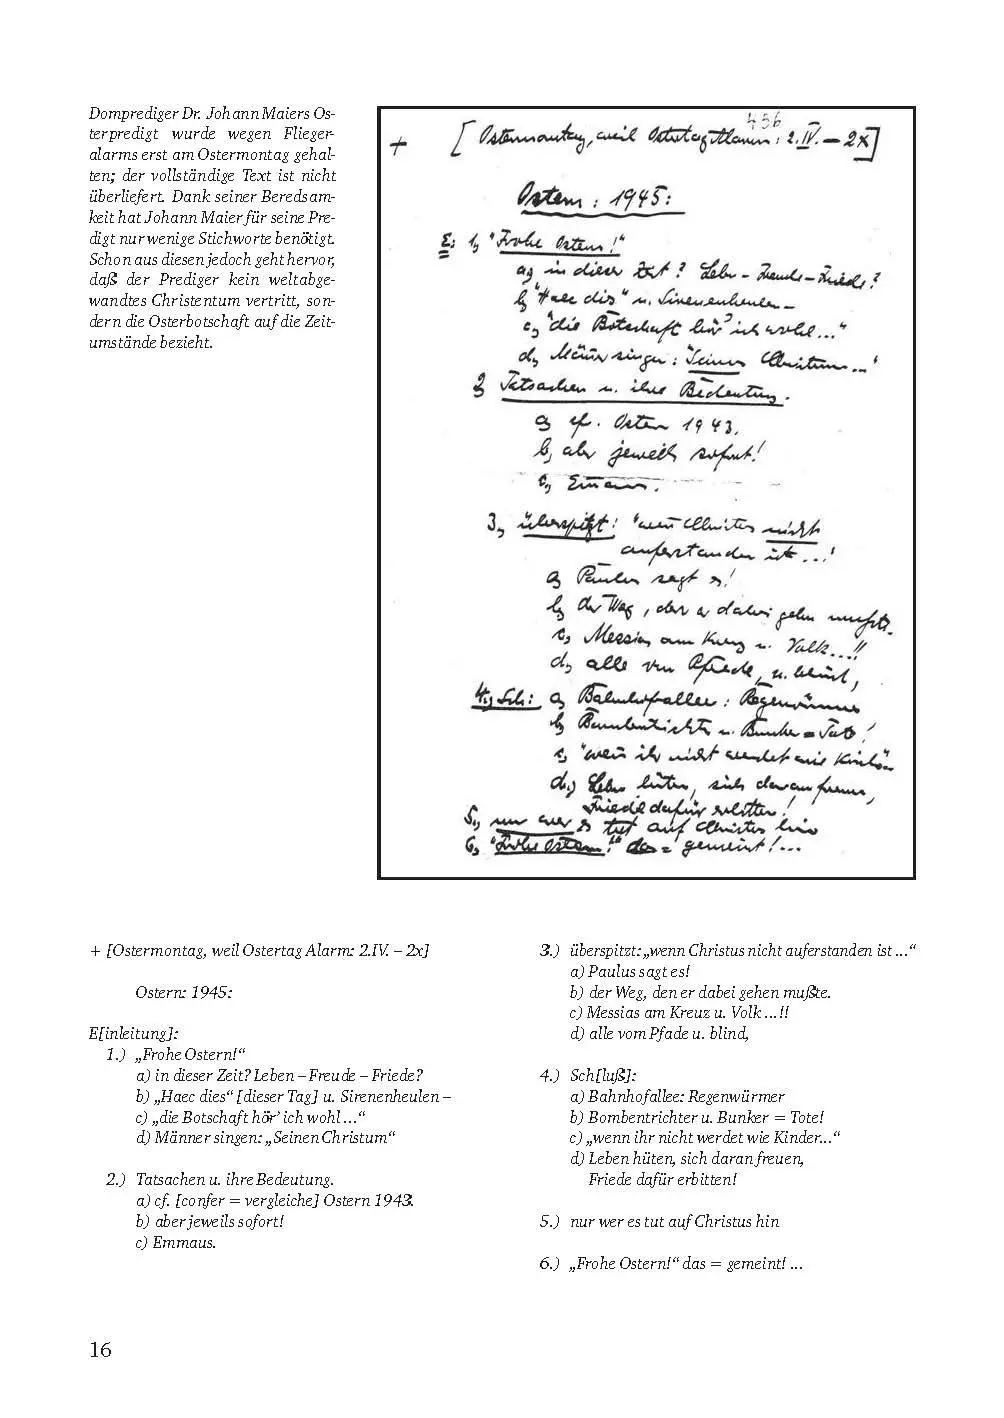 Domprediger Dr. Johann Maiers Os-
terpredigt wurde wegen Flieger-
alarms erst am Ostermontag gehal-
ten; der vollständige Text ist nicht
überliefert. Dank seiner Beredsam-
keit hat Johann Maier für seine Pre-
digt nur wenige Stichworte benötigt.
Schon aus diesen jedoch geht hervor,
daß der Prediger kein weltabge-
wandtes Christentum vertritt, son-
dern die Osterbotschaft auf die Zeit-
umstände bezieht.
456
+ [Ostermontag, weil Ostertag Alarm: 2.IV. – 2x]
Ostern: 1945:
E: 1, "Frohe Ostern!"
a, in dieser Zeit? Leben – Freude – Friede?
b, "Haec dies" u. Sirenenheulen –
c, "die Botschaft hör' ich wohl..."
d, Männer singen: "Seinen Christum..."
2, Tatsachen u. ihre Bedeutung.
a, cf. Ostern 1943.
b, aber jeweils sofort!
c, Emaus.
3, überspitzt: "wenn Christus nicht
auferstanden ist...!
a, Paulus sagt es!
b, der Weg, den er dabei gehn mußte.
c, Messias am Kreuz u. Volk...!!
d, alle vom Pfade, u. blind,
4., Sch: a, Bahnhofallee: Regenwürmer
b, Bombentrichter u. Bunker = Tote!
c, "wenn ihr nicht werdet wie Kinder
d., Leben hüten, sich daran freuen,
Friede dafür erbitten!
5., nur wer es tut auf Christus hin
6, "Frohe Ostern!" das = gemeint!...
+ [Ostermontag, weil Ostertag Alarm: 2.IV. – 2x]
Ostern: 1945:
E[inleitung]:
1.) „Frohe Ostern!“
a) in dieser Zeit? Leben – Freude – Friede?
b) „Haec dies“ [dieser Tag] u. Sirenenheulen –
c) „die Botschaft hör’ ich wohl ...“
d) Männer singen: „Seinen Christum“
2.) Tatsachen u. ihre Bedeutung.
a) cf. [confer = vergleiche] Ostern 1943.
b) aber jeweils sofort!
c) Emmaus.
3.) überspitzt: „wenn Christus nicht auferstanden ist ...“
a) Paulus sagt es!
b) der Weg, den er dabei gehen mußte.
c) Messias am Kreuz u. Volk ...!!
d) alle vom Pfade u. blind,
4.) Sch[luß]:
a) Bahnhofallee: Regenwürmer
b) Bombentrichter u. Bunker = Tote!
c) „wenn ihr nicht werdet wie Kinder...“
d) Leben hüten, sich daran freuen,
Friede dafür erbitten!
5.) nur wer es tut auf Christus hin
6.) „Frohe Ostern!“ das = gemeint! ...
16